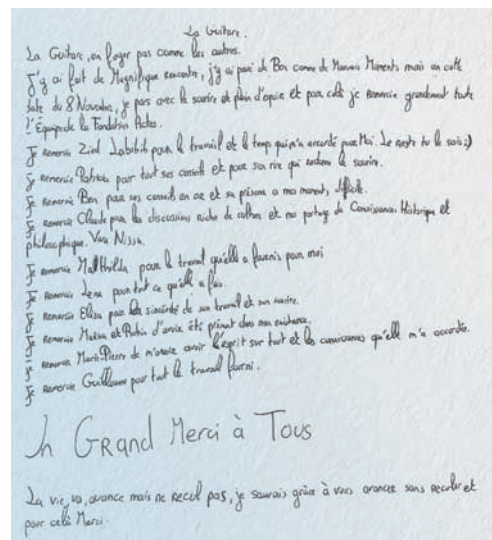 La Guitare.
La Guitare, un foyer pas comme les autres.
J'y ai fait de Magnifique rencontre, j'y ai passé de Bon comme de Mauvais Moments mais en cette
date du 8 Novembre, je pars avec le sourire et plein d'espoir et pour cela je remercie grandement toute
l'Équipe de la Fondation
Je remercie Zied pour le travail et le temps qu'il m'a accordé pour Moi. Le reste tu le sais ;)
Je remercie Patricia pour tout ses conseils et pour son rire qui redonne le sourire.
Je remercie Ben pour ses conseils en or et sa présence a mes moments difficile.
Je remercie Claude pour les discussions riche de culture et nos partage de Connaissances Historique et
philosophique. Viva Nissa.
Je remercie Mathilda pour le travail qu'elle a fournis pour moi
Je remercie Lena pour tout ce qu'elle a fais.
Je remercie Elisa pour la sincérité de son travail et son sourire.
Je remercie et Robin d'avoir êts présent dans mon existence.
Je remercie Marie-Pierre de m'avoir ouvrir l'esprit sur tout et les connaissances qu'elle m'a accordée.
Je remercie Guillaume pour tout le travail fourni.
Un GRand Merci à Tous
La vie, va, avance mais ne recul pas, je saurais grâce à vous avancer sans reculer et
pour cela Merci.